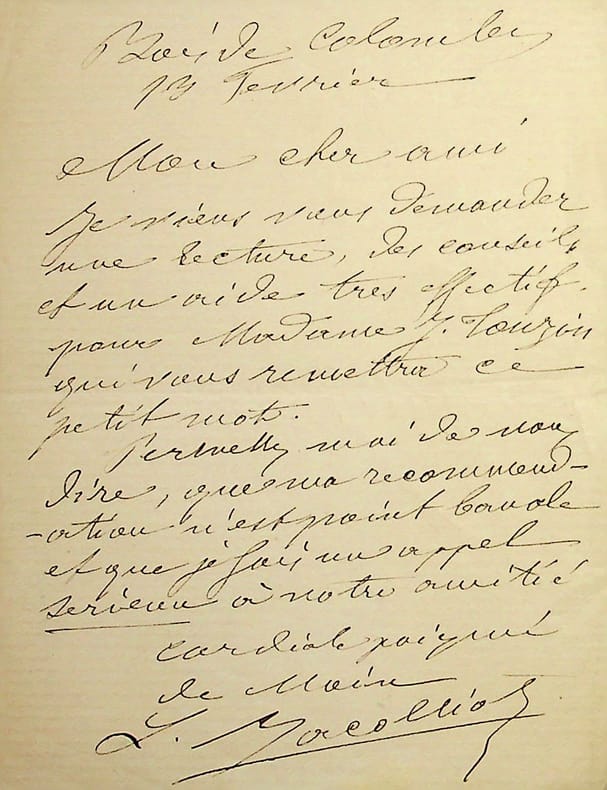 Bois de Colombes
13 Fevrier
Mon cher ami
Je viens vous demander
une lecture, des conseils
et un aide tres effectif
pour Madame J. Touzin
qui vous remettra ce
petit mot.
Permettez moi de vous
dire, que ma recommend-
-ation n'est point banale
et que je fais un appel
serieux à notre amitié
cordiale poigné
de Main
L. Jacolliot